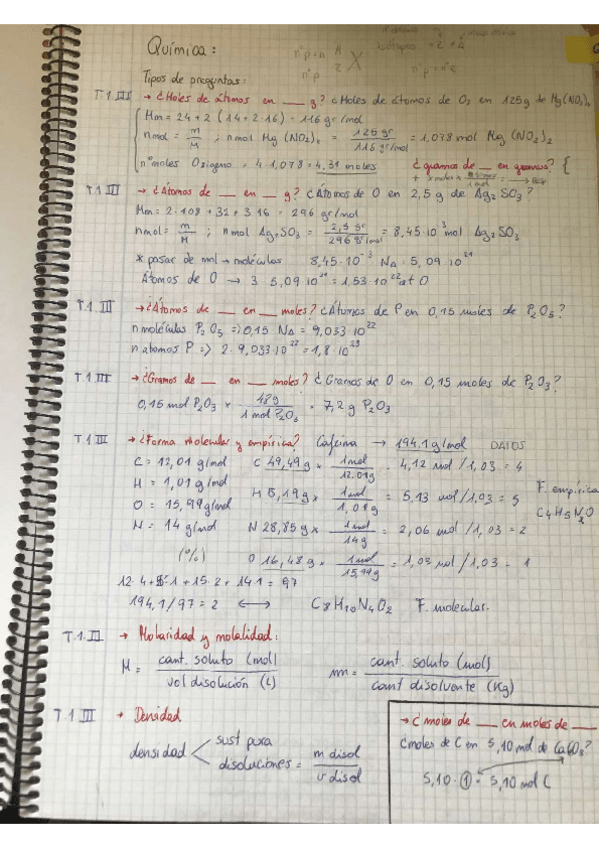 Química:
Tipos de preguntas:
T.1 III → ¿Moles de átomos en ___ g? ¿Moles de átomos de O₂ en 125g de Mg(NO₂)₂
Mm = 24 + 2 (14 + 2·16) = 116 gr/mol
nmol = m/M ; nmol Mg (NO₂)₂ = 125 gr / 116 gr/mol = 1,078 mol Mg (NO₂)₂
nº moles Oxígeno = 4·1,078 = 4,31 moles
¿gramos de __ en gramos? {
T.1 III → ¿Átomos de __ en __ g? ¿Átomos de O en 2,5 g de Ag₂ SO₃?
Mm: 2·108 + 32 + 3·16 = 296 gr/mol
nmol = m/M ; nmol Ag₂SO₃ = 2,5 gr / 296 gr/mol = 8,45·10⁻³ mol Ag₂ SO₃
* pasar de mol → moléculas 8,45·10⁻³ · NA = 5,09·10²¹
Átomos de O → 3·5,09·10²¹ = 1,53·10²² at O
T.1 III → ¿Átomos de __ en __ moles? ¿Átomos de P en 0,15 moles de P₂O₅?
n moléculas P₂O₅ => 0,15 · NA = 9,033·10²²
n atomos P => 2·9,033·10²² = 1,8·10²³
T.1 III → ¿Gramos de __ en __ moles? ¿Gramos de O en 0,15 moles de P₂O₃?
0,15 mol P₂O₃ × 48g / 1 mol P₂O₃ = 7,2 g P₂O₃
T.1 III → ¿Forma molecular y empírica? Cafeína → 194,1 g/mol DATOS
C = 12,01 g/mol C 49,49 g × 1mol / 12,01g = 4,12 mol / 1,03 = 4
H = 1,01 g/mol H 5,19 g × 1mol / 1,01g = 5,13 mol / 1,03 = 5 F. empírica
O = 15,99 g/mol N 28,85 g × 1mol / 14g = 2,06 mol / 1,03 = 2 C₄H₅N₂O
N = 14 g/mol O 16,48 g × 1mol / 15,99g = 1,03 mol / 1,03 = 1
(%)
194,1/97 = 2 ⟷ C₈H₁₀N₄O₂ F. molecular.
T.1.III → Molaridad y molalidad:
M = cant. soluto (mol) / vol disolución (L) m = cant. soluto (mol) / cant disolvente (Kg)
T.1 III → Densidad
densidad < sust pura
disoluciones = m disol / v disol
→ ¿moles de __ en moles de __
¿moles de C en 5,10 mol de CaCO₃?
5,10 · 1 = 5,10 mol C